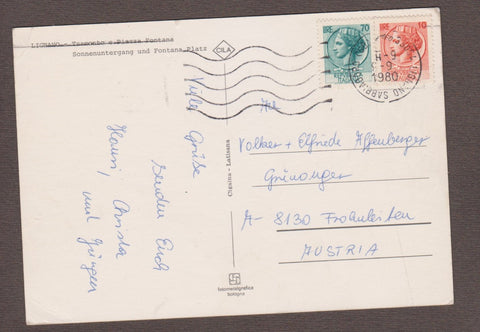 LIGNANO - Tramonto e Piazza Fontana
Sonnenuntergang und Fontana Platz
CILA
Viele Grüße
senden Euch
Hansi, Christa
und Jürgen
Cigaina - Latisana
fotometalgrafica
bologna
LIRE 70
LIRE 10
LIGNANO SABBIADORO
1980
Volker + Elfriede Affenberger
A- 8130 Frohnleiten
AUSTRIA